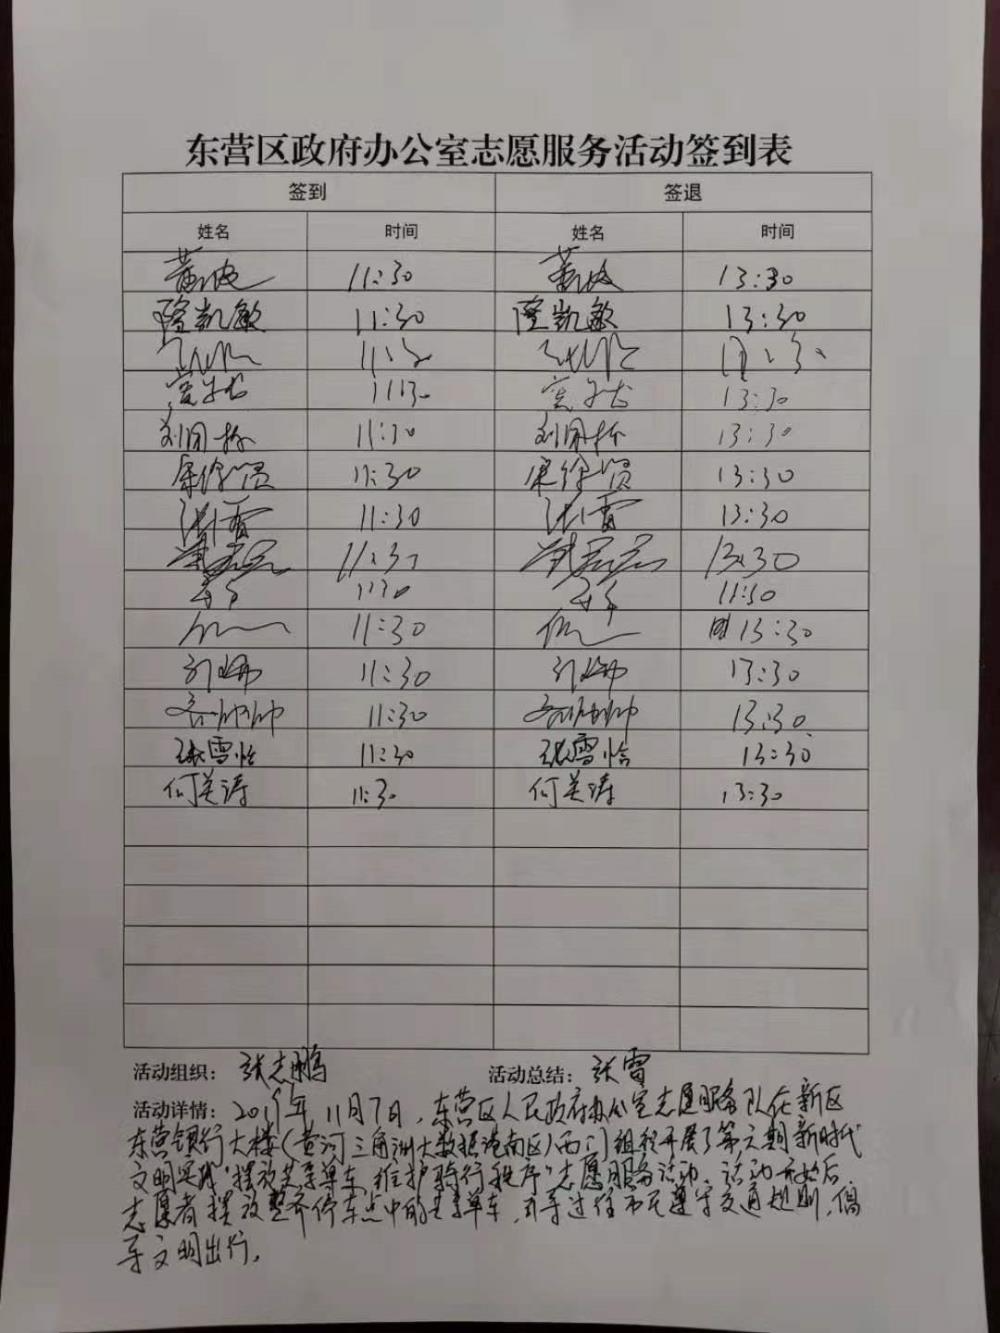 东营区政府办公室志愿服务活动签到表
签到 签退
姓名 时间 姓名 时间
11:30 13:30
隆凯敏 11:30 隆凯敏 13:30
1130 13:30
11:30 13:30
11:30 13:30
张雪 11:30 张雪 13:30
11:30 13:30
11:30
11:30 13:30
11:30 13:30
齐帅帅 11:30 齐帅帅 13:30
张雪怡 11:30 张雪怡 13:30
何美涛 11:30 何美涛 13:30
活动组织：张志鹏 活动总结：张雪
活动详情：2019年11月7日，东营区人民政府办公室志愿服务队在新区
东营银行大楼(黄河三角洲大数据港南区)西门组织开展了第六期新时代
文明实践"摆放共享单车，维护骑行秩序"志愿服务活动。活动开始后，
志愿者摆放整齐停车点中的共享单车，引导过往市民遵守交通规则，倡
导文明出行。